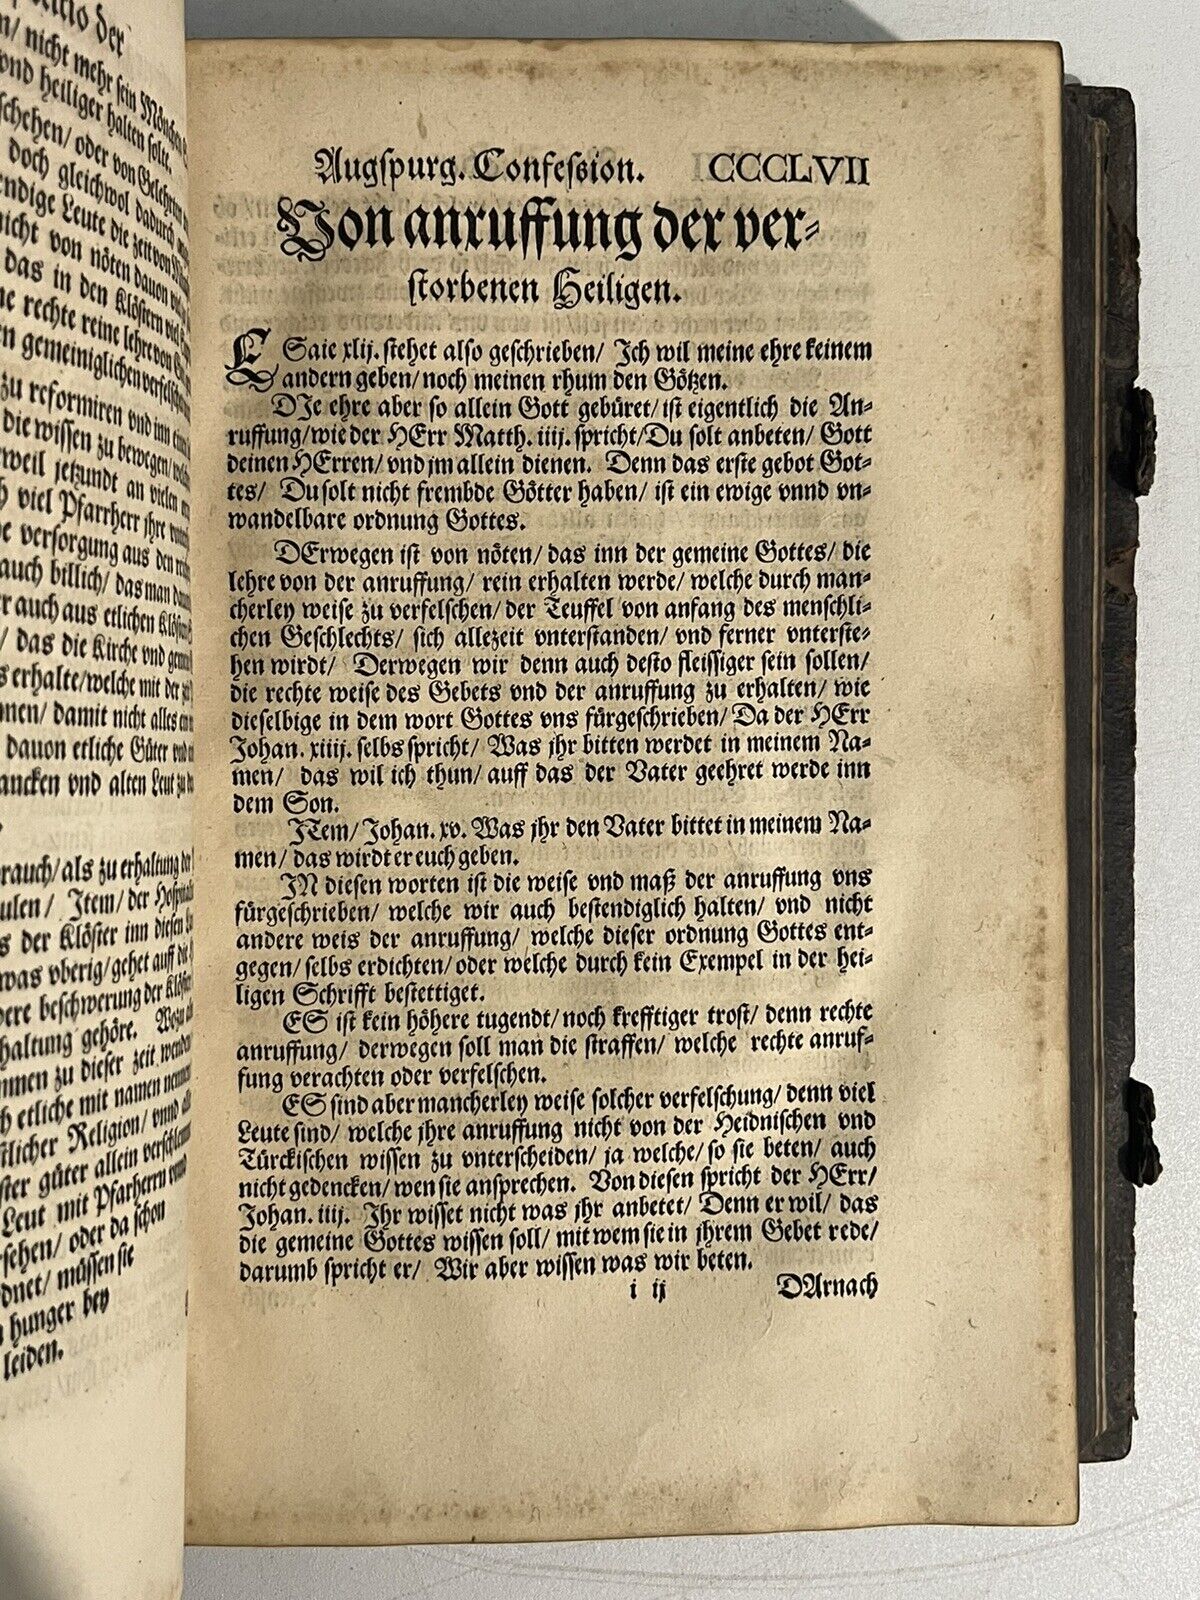 itio der
n/ nicht mehr sein Mönchen
vnd heiliger halten solte.
schehen/ oder von Gelehrten
doch gleichwol dadurch
endige Leute die zeit von
nicht von nöten dauon
das in den Klöstern viel
ne rechte reine lehre von
n gemeiniglichen verfelscht
zu reformiren vnd inn
die wissen zu bewegen/
weil jetzundt an vielen
h viel Pfarrherr jhre
e versorgung aus den
auch billich/ das man
r auch aus etlichen
/ das die Kirche vnd
s erhalte/ welche mit der
nen/ damit nicht alles
dauon etliche Güter vnd
ancken vnd alten Leut zu
rauch/ als zu erhaltung der
ulen/ Item/ der
s der Klöster inn diesen
was vberig/ gehet auff die
ere beschwerung der
haltung gehöre.
nmen zu dieser zeit
h etliche mit namen
tlicher Religion/ vnnd
ster güter allein
Leut mit Pfarherrn vnnd
sehen/ oder da schon
dnet/ müssen sie
n hunger bey
leiden.
Augspurg. Confession. CCCCLVII
Von anruffung der ver-
storbenen Heiligen.
ESaie xlij. stehet also geschrieben/ Ich wil meine ehre keinem
andern geben/ noch meinen rhum den Götzen.
DIe ehre aber so allein Gott gebüret/ ist eigentlich die An-
ruffung/ wie der HErr Matth. iiij. spricht/ Du solt anbeten/ Gott
deinen HErren/ vnd jm allein dienen. Denn das erste gebot Got-
tes/ Du solt nicht frembde Götter haben/ ist ein ewige vnnd vn-
wandelbare ordnung Gottes.
DErwegen ist von nöten/ das inn der gemeine Gottes/ die
lehre von der anruffung/ rein erhalten werde/ welche durch man-
cherley weise zu verfelschen/ der Teuffel von anfang des menschli-
chen Geschlechts/ sich allezeit vnterstanden/ vnd ferner vnterste-
hen wirdt/ Derwegen wir denn auch desto fleissiger sein sollen/
die rechte weise des Gebets vnd der anruffung zu erhalten/ wie
dieselbige in dem wort Gottes vns fürgeschrieben/ Da der HErr
Johan. xiiij. selbs spricht/ Was jhr bitten werdet in meinem Na-
men/ das wil ich thun/ auff das der Vater geehret werde inn
dem Son.
JTem/ Johan. xv. Was jhr den Vater bittet in meinem Na-
men/ das wirdt er euch geben.
IN diesen worten ist die weise vnd maß der anruffung vns
fürgeschrieben/ welche wir auch bestendiglich halten/ vnd nicht
andere weis der anruffung/ welche dieser ordnung Gottes ent-
gegen/ selbs erdichten/ oder welche durch kein Exempel in der hei-
ligen Schrifft bestettiget.
ES ist kein höhere tugendt/ noch krefftiger trost/ denn rechte
anruffung/ derwegen soll man die straffen/ welche rechte anruf-
fung verachten oder verfelschen.
ES sind aber mancherley weise solcher verfelschung/ denn viel
Leute sind/ welche jhre anruffung nicht von der Heidnischen vnd
Türckischen wissen zu vnterscheiden/ ja welche/ so sie beten/ auch
nicht gedencken/ wen sie ansprechen. Von diesen spricht der HErr/
Johan. iiij. Ihr wisset nicht was jhr anbetet/ Denn er wil/ das
die gemeine Gottes wissen soll/ mit wem sie in jhrem Gebet rede/
darumb spricht er/ Wir aber wissen was wir beten.
i ij DArnach